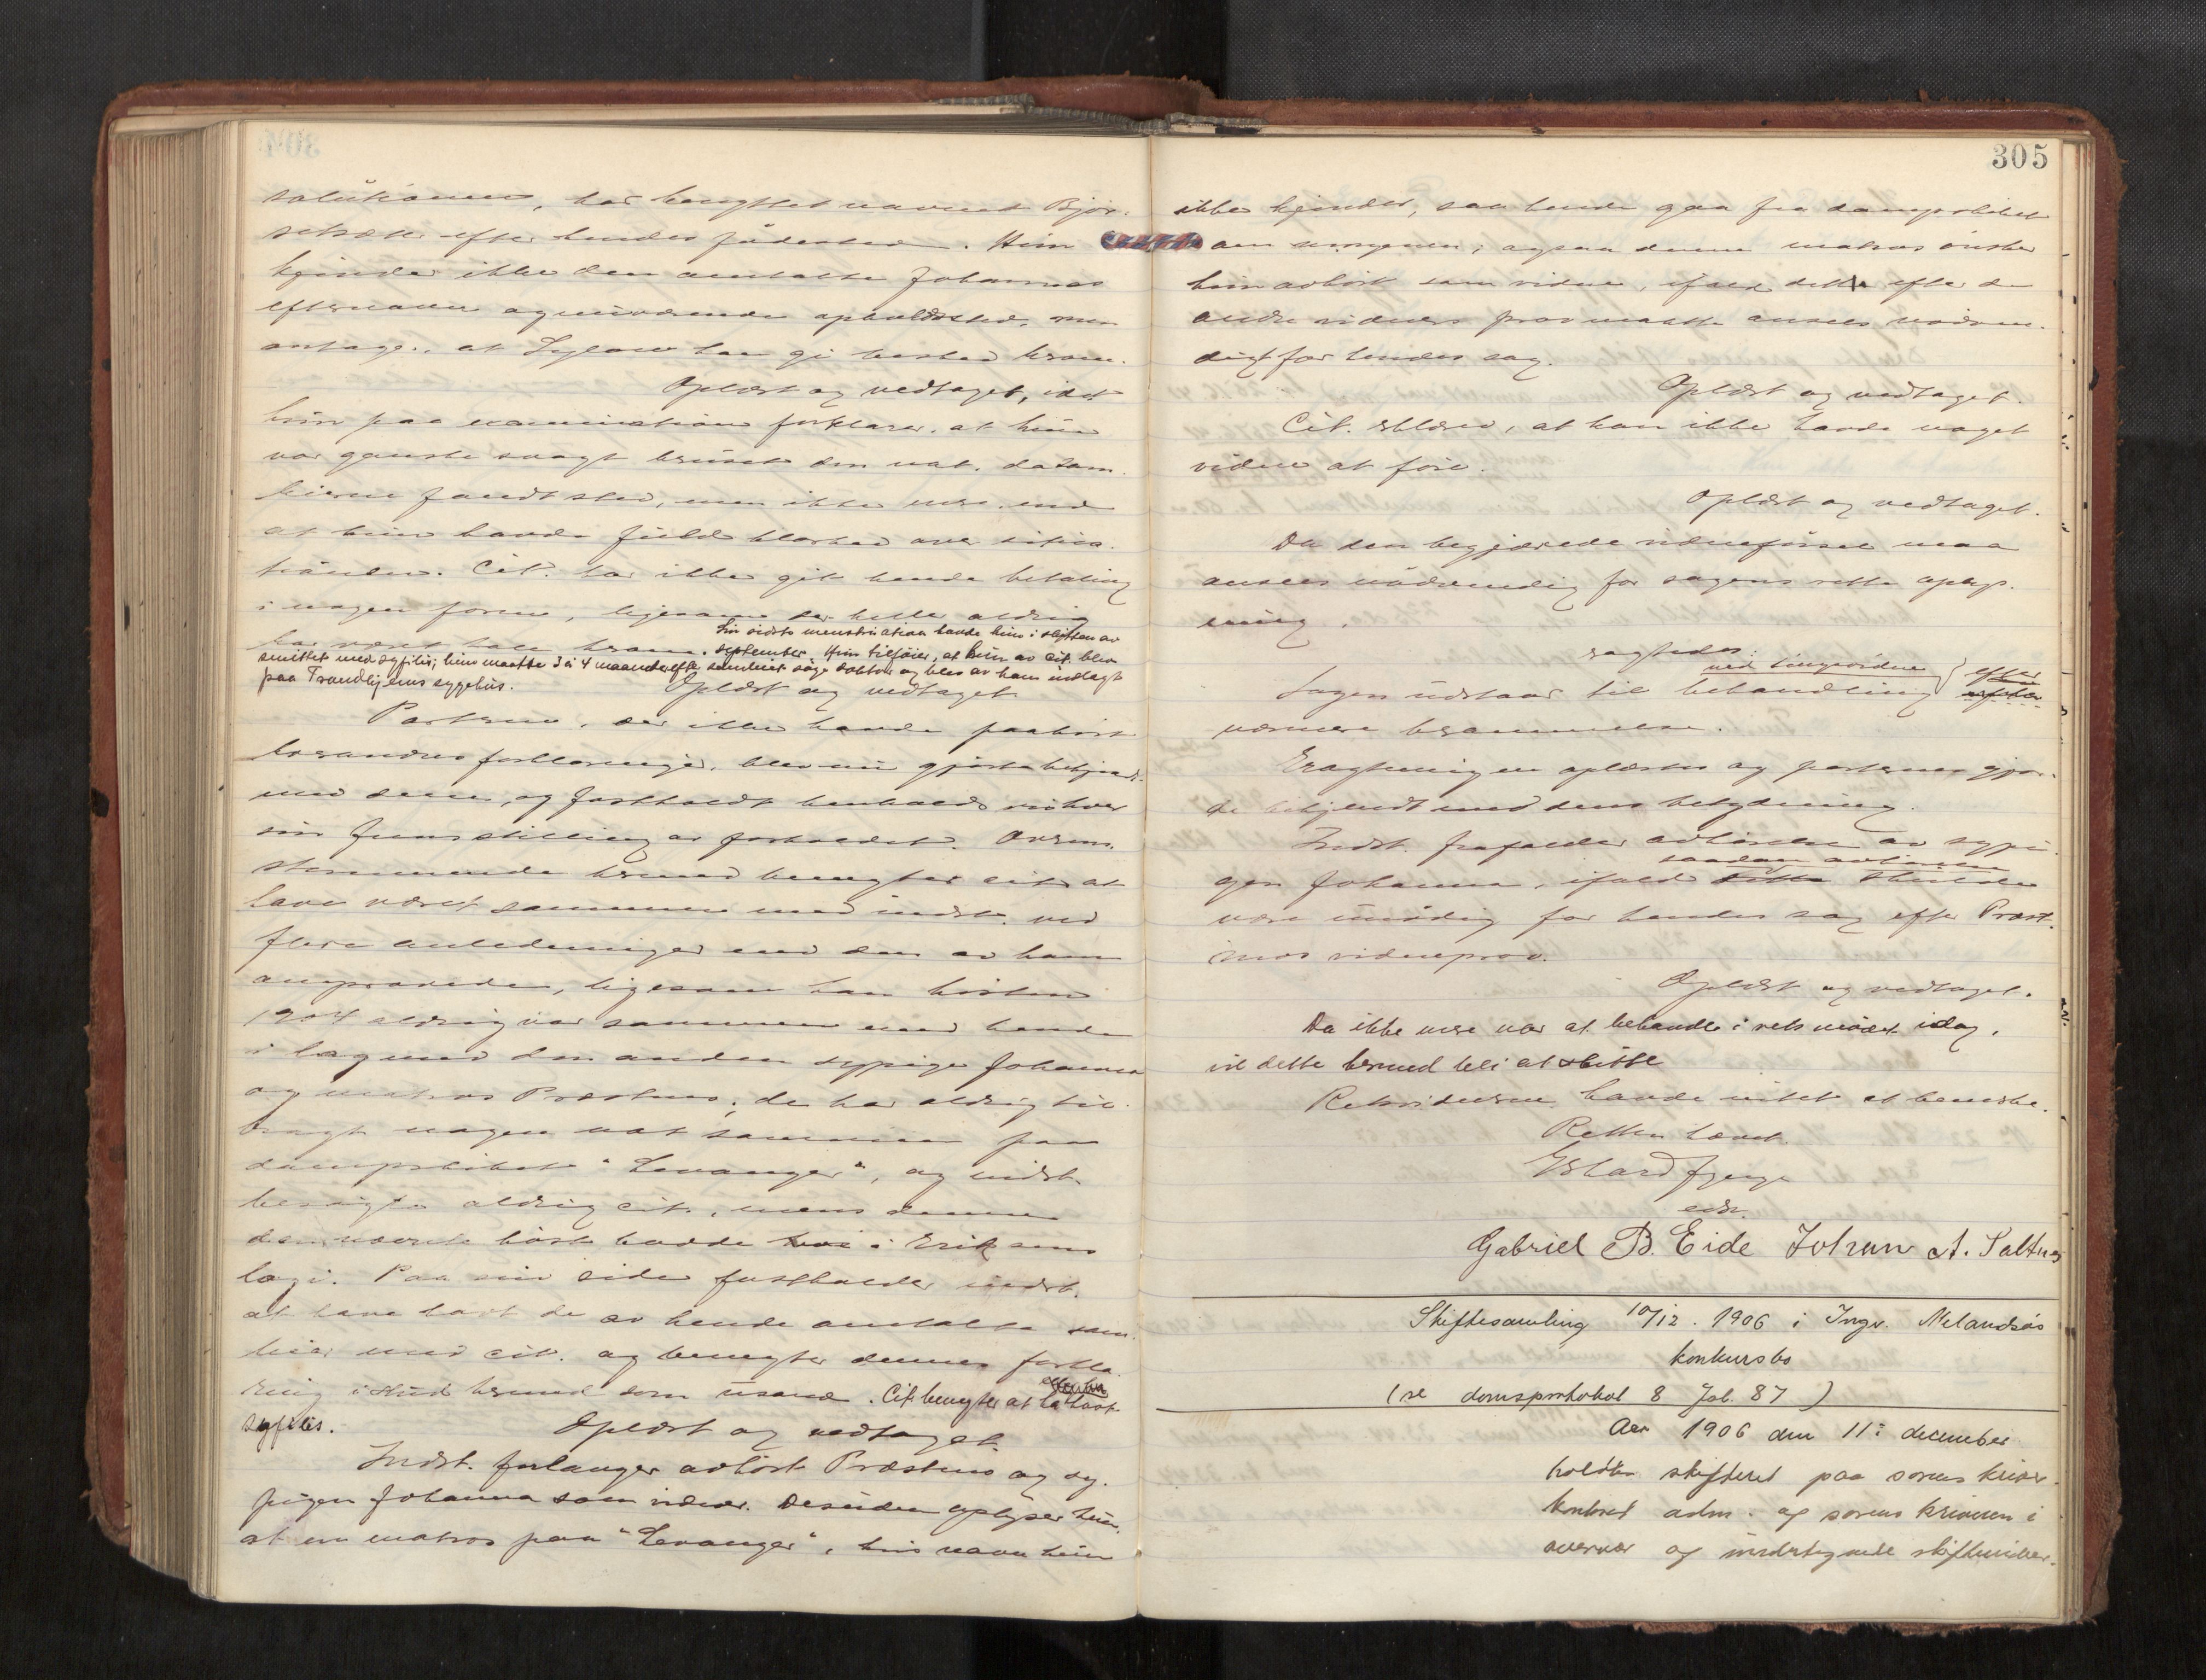 304
, har benyttet navnet Bjør-
efter hendes fødested. Hun
kjender ikke den omtalte Johannas
efternavn og nuværende opholdssted, men
antage, at han gi besked herom.
Oplæst og vedtaget, idet
hun paa examination forklarer, at hun
var ganske svagt beruset den nat,
fandt sted, men ikke mere end
at hun havde fuld klarhed over situa-
tionen. Cit. har ikke git hende betaling
i nogen form, ligesom der heller aldrig
har været tale herom. Sin sidste menstruation havde hun i slutten av
september. Hun tilføier, at hun av cit. blev
smittet med syfilis; hun maatte 3 à 4 maaneder efter samleiet søge doktor og blev av ham indlagt
paa Trondhjems sygehus.
Oplæst og vedtaget
Parterne, der ikke havde paahørt
hverandres forklaringer, blev nu gjort bekjendt
med denne, og fastholdt henholdsvis hver
sin fremstilling av forholdet. Overens-
stemmende hermed benegter cit. at
have været sammen med indst. ved
flere anledninger end den av ham
, ligesom han høsten
1904 aldrig var sammen med hende
i lag med den anden sypige Johanna
og matros Præstmo; de har aldrig til-
bragt nogen nat sammen paa
dampskibet "Levanger", og indst.
besøgte aldrig cit., mens denne
høst hadde i Eriksens
logi. Paa sin side fastholder indst.
at have havt de av hende omtalte sam-
leier med cit. og benegter dennes forkla-
ring i strid hermed som usand. Cit. benegter at ha havt
syfilis.
Oplæst og vedtaget.
Indst. forlanger avhørt Præstmo og sy-
pigen Johanna som vidner. Desuden oplyser hun,
at en matros paa "Levanger", hvis navn hun
305
ikke kjender, saa hende gaa fra dampskibet
om morgenen; ogsaa denne matros ønsker
hun avhørt som vidne, ifald dette efter de
andre vidners prov maatte ansees nødven-
digt for hendes sag.
Oplæst og vedtaget.
Cit. erklærer, at han ikke havde noget
vidne at føre.
Oplæst og vedtaget.
Da den begjærede vidneførsel maa
ansees nødvendig for sagens rette oplys-
ning,
ragtedes:
Sagen utstaar til behandling ved tingvidne efter
nærmere berammelse.
Eragtningen oplæstes og parterne gjor-
de bekjendt med dens betydning.
Indst. frafalder avhørelse av sypi-
gen Johanna, ifald saadan avhørelse skulde
være unødig for hendes sag efter Præst-
mos vidneprov.
Oplæst og vedtaget.
Da ikke mere var at behandle i retsmødet idag,
vil dette hermed bli at slutte
Retsvidnerne havde intet at bemerke.
Retten hævet.
edsv.
Gabriel B. Eide Johan A. Saltnes
Skiftesamling 10/12. 1906 i Ingv. Melandsøs
konkursbo
(se domsprotokol 8 Fol. 87)
Aar 1906 den 11: december
holdtes skifteret paa sorenskriver-
kontoret adm. af sorenskriveren i
overvær af undertegnede skiftevidner.